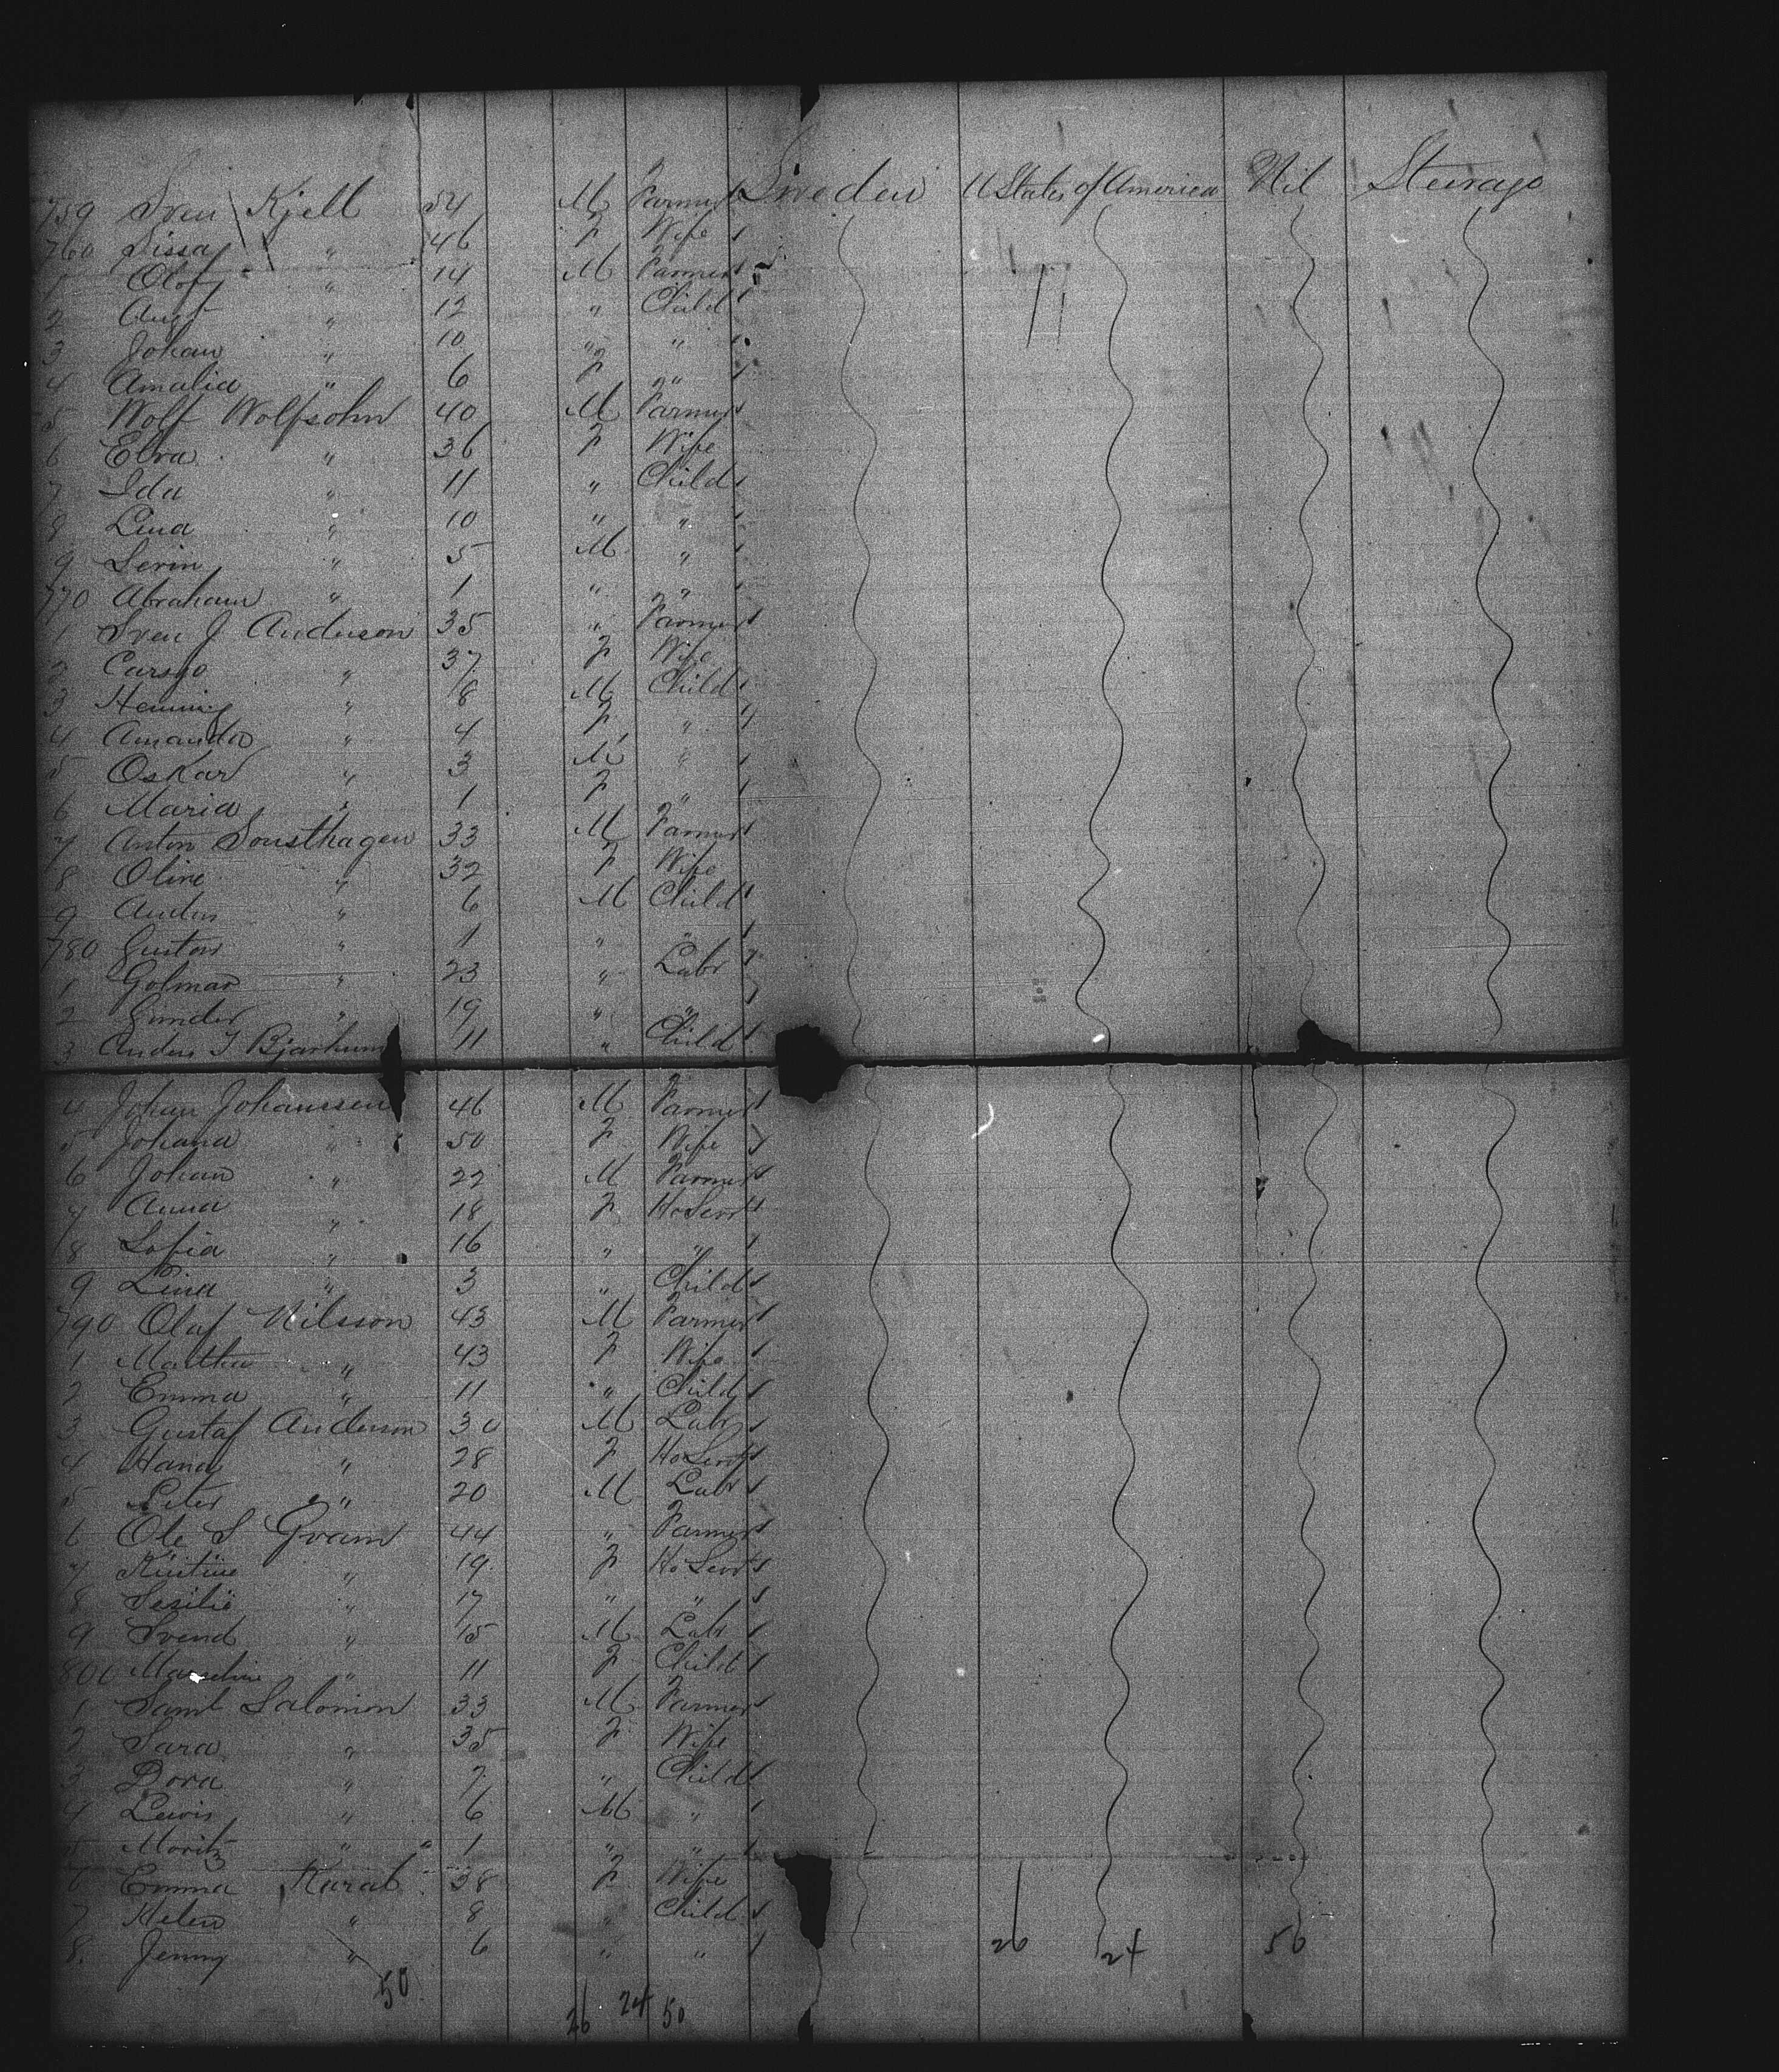 759 Sven Kjell 54 M Farmer Sweden U States of America Nil Steerage
760 Sissa " 46 F Wife
1 Olof " 14 M Farmer
2 Aug " 12 " Child
3 Johan " 10 " "
4 Amalia " 6 F "
5 Wolf Wolfsohn 40 M Farmer
6 Elva " 36 F Wife
7 Ida " 11 " Child
8 Lina " 10 " "
9 Serin " 5 M "
770 Abraham " 1 " "
1 Sven J Anderson 35 " Farmer
2 " 37 F Wife
3 Hening " 8 M Child
4 Amanda " 4 F "
5 Oskar " 3 M "
6 Maria " 1 F "
7 Anton Sousthagen 33 M Farmer
8 Oline " 32 F Wife
9 Anders " 6 M Child
780 Gustav " 1 " "
1 Golmar " 23 " Labr
2 Gunder " 19 " "
3 Anders T Bjarhum 11 " Child
4 Johan Johanssen 46 M Farmer
5 Johana " 50 F Wife
6 Johan " 22 M Farmer
7 Anna " 18 F HoServt
8 Sofia " 16 " "
9 Lina " 3 " Child
790 Olaf Nilsson 43 M Farmer
1 Martha " 43 F Wife
2 Emma " 11 " Child
3 Gustaf Anderson 30 M Labr
4 Hana " 28 F HoServt
5 Peter " 20 M Labr
6 Ole S Gvam 44 " Farmer
7 " 19 F HoServt
8 Sesilie " 17 " "
9 Svend " 15 M Labr
800 " 11 F Child
1 Saml Salomon 33 M Farmer
2 Sara " 35 F Wife
3 Dora " 7 " Child
4 Lewis " 6 M "
5 Moritz " 1 " "
6 Emma Karat 38 F Wife
7 Helen " 8 " Child
8 Jenny " 6 " "
26 24 50
50
26 24 50